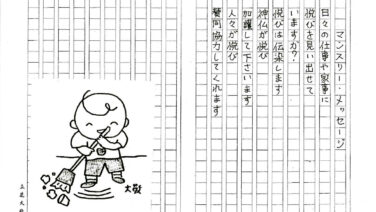 マンスリー・メッセージ
日々の仕事や家事に
悦びを見い出せて
いますか?
悦びは伝染します
神仏が悦び
加護して下さいます
人々が悦び
賛同協力してくれます